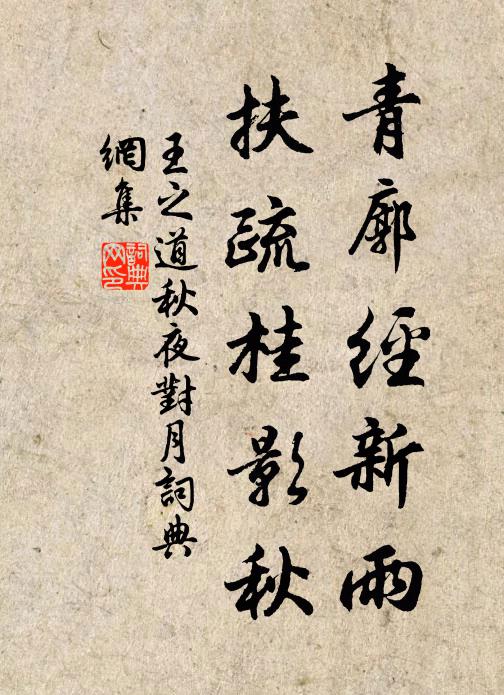 青廓經新雨
扶疏桂影秋
王之道秋夜對月詞典
網集
詞典
网印